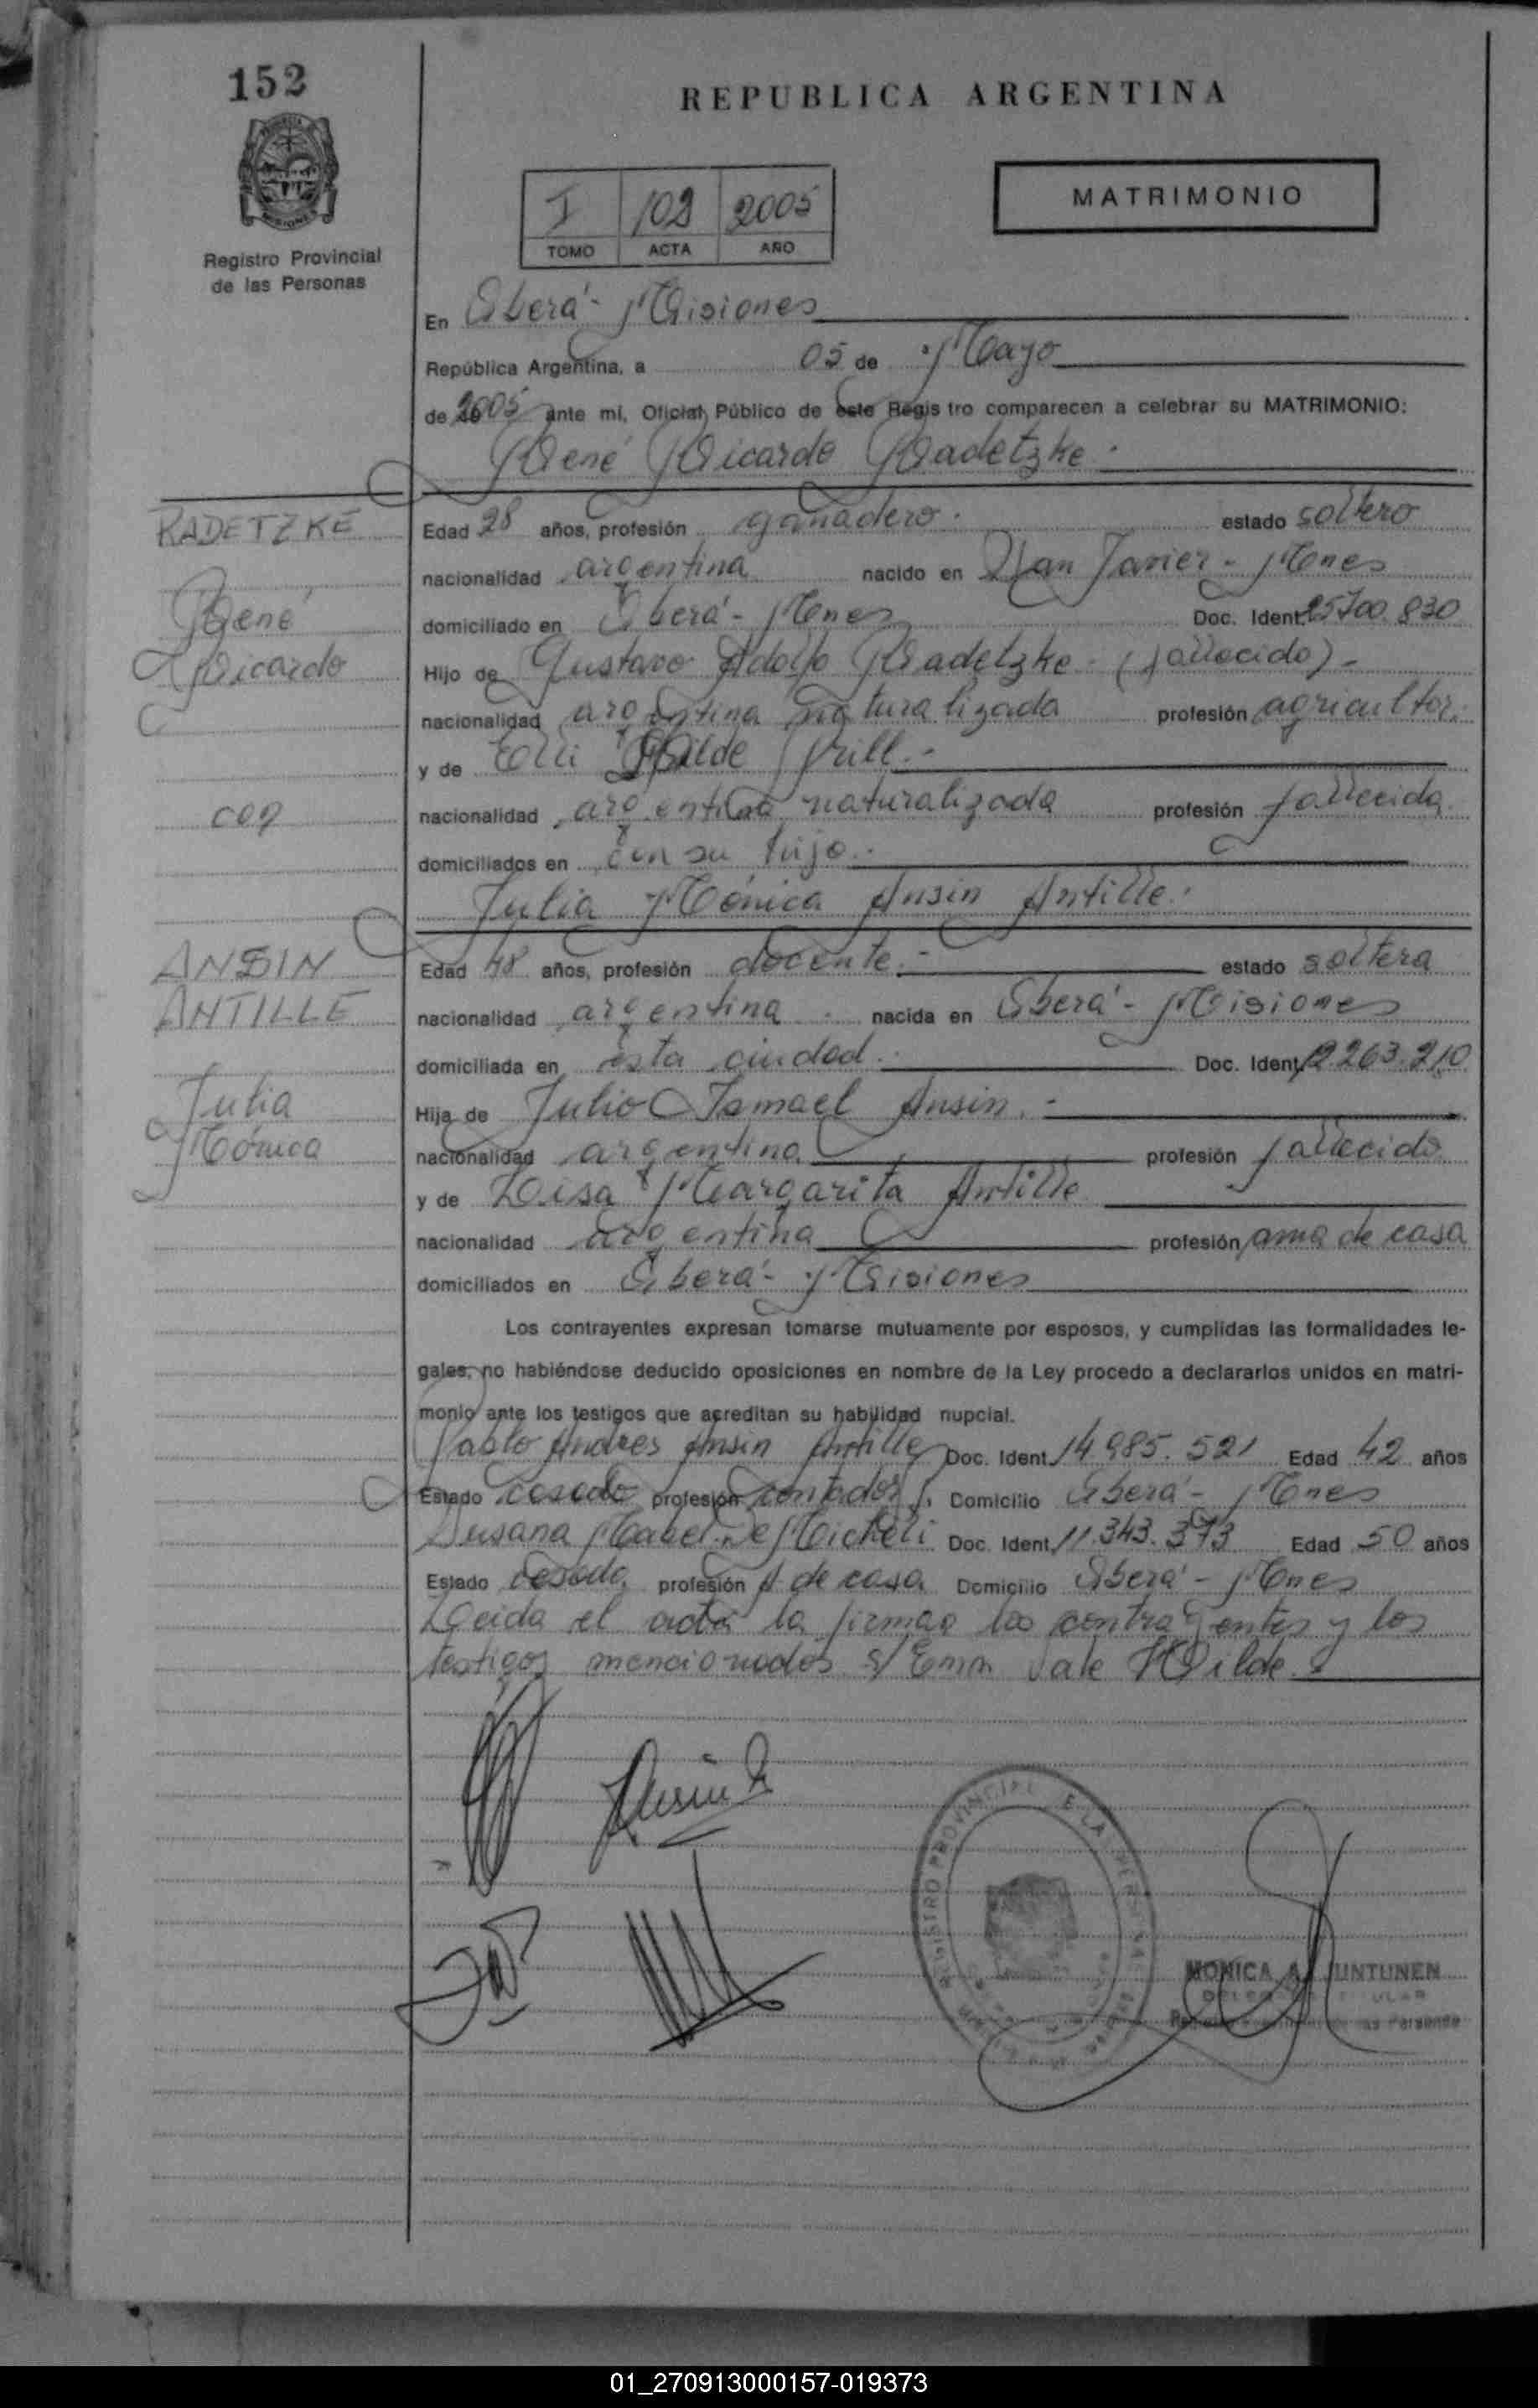 152
REPUBLICA ARGENTINA
Registro Provincial
de las Personas
I 102 2005
TOMO ACTA AÑO
MATRIMONIO
En Oberá - Misiones
República Argentina, a 05 de Mayo
de 2005 ante mi, Oficial Público de este Regis tro comparecen a celebrar su MATRIMONIO:
René Ricardo Radetzke.
RADETZKE
René
Ricardo
Edad 28 años, profesión ganadero. estado soltero
nacionalidad argentina nacido en San Javier - Mnes
domiciliado en Oberá - Mnes Doc. Ident. 25.700.830
Hijo de Gustavo Adolfo Radetzke (fallecido) -
nacionalidad argentina naturalizada profesión agricultor.
y de Elli Hilde Prill. -
nacionalidad argentina naturalizada profesión fallecida
domiciliados en con su hijo. -
Julia Mónica Ansin Antille.
ANSIN
ANTILLE
Julia
Mónica
Edad 48 años, profesión docente. - estado soltera
nacionalidad argentina nacida en Oberá - Misiones
domiciliada en ésta ciudad. Doc. Ident. 12.263.210
Hija de Julio Ismael Ansin. -
nacionalidad argentina profesión fallecido
y de Margarita Antille
nacionalidad argentina profesión ama de casa
domiciliados en Oberá - Misiones
Los contrayentes expresan tomarse mutuamente por esposos, y cumplidas las formalidades le-
gales, no habiéndose deducido oposiciones en nombre de la Ley procedo a declararlos unidos en matri-
monio ante los testigos que acreditan su habilidad nupcial.
Pablo Andres Ansin Antille Doc. Ident. 14.985.521 Edad 42 años
Estado casado profesión contador Domicilio Oberá - Mnes
Susana Mabel De Micheli Doc. Ident. 11.343.373 Edad 50 años
Estado casada profesión A de casa Domicilio Oberá - Mnes
Leida el acta la firman los contrayentes y los
testigos mencionados s/ Enm Vale Hilde.
REGISTRO PROVINCIAL DE LAS PERSONAS
MONICA A. UNTUNEN
01_270913000157-019373